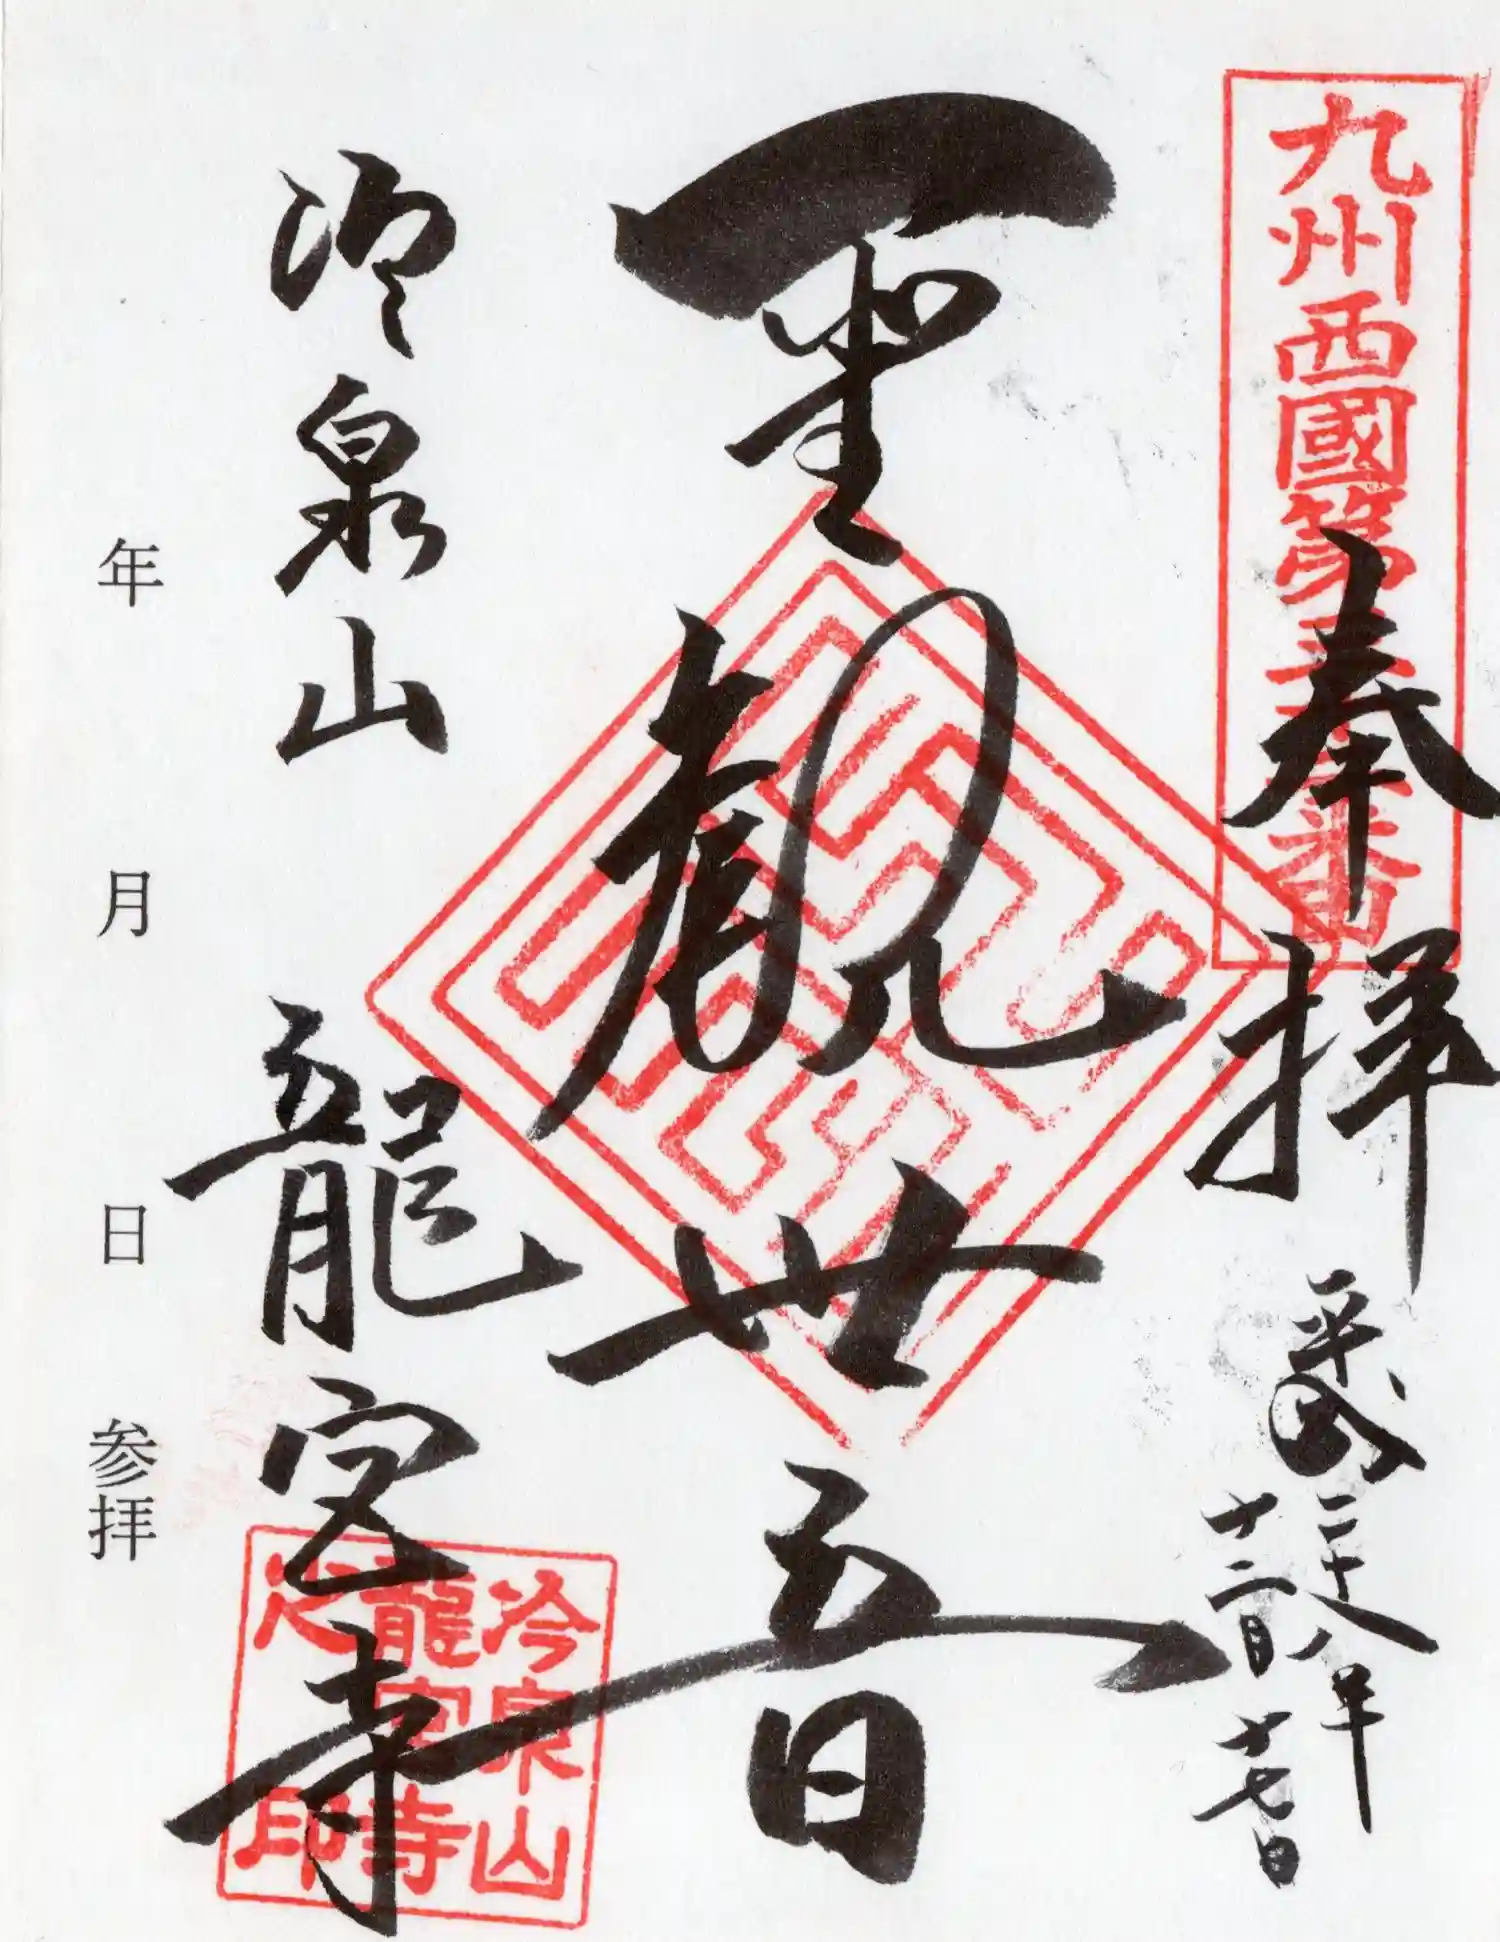 九州西國第三十二番
奉拝
平成二十八年
十二月十七日
聖観世音
冷泉山 龍宮寺
冷泉山
龍宮寺
之印
年 月 日 参拝